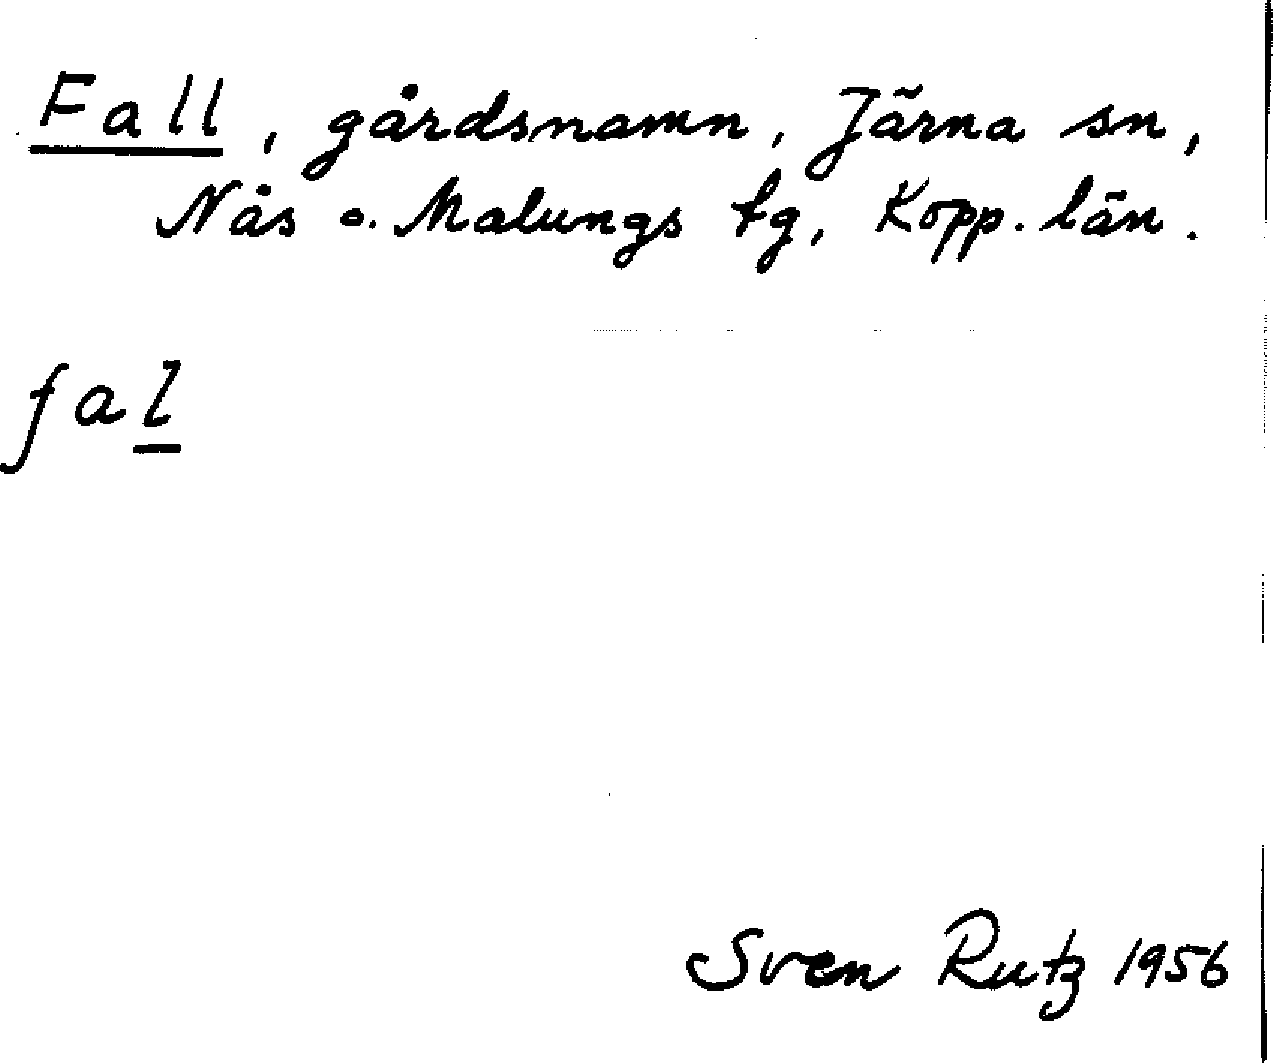 Fall, gårdsnamn, Järna sn,
Nås o. Malungs tg, Kopp. län.
fal
Sven Rutz 1956